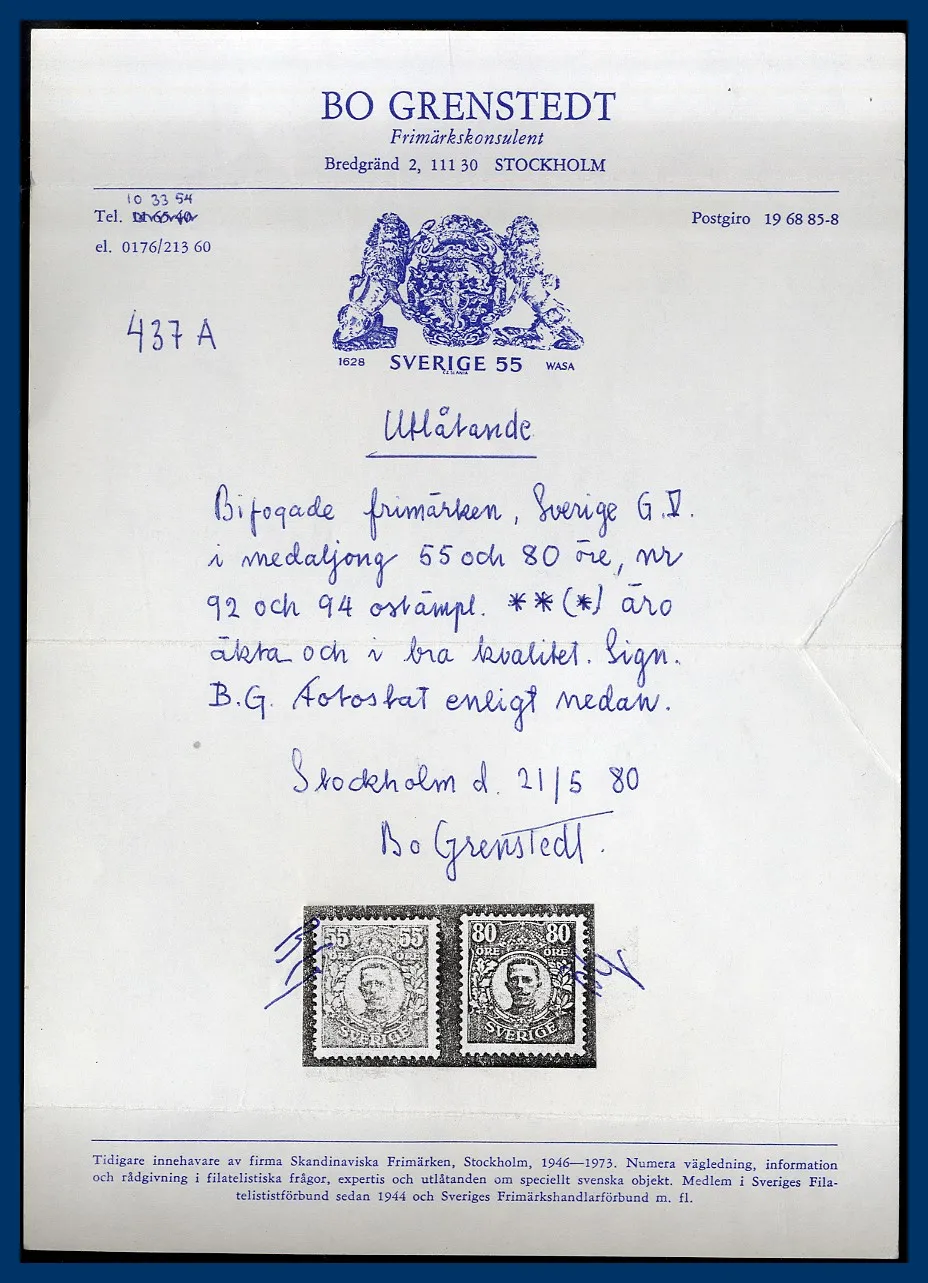 BO GRENSTEDT
Frimärkskonsulent
Bredgränd 2, 111 30 STOCKHOLM
10 33 54
Tel.
Postgiro 19 68 85-8
el. 0176/213 60
437 A
1628 SVERIGE 55 WASA
CZ SLANIA
Utlåtande
Bifogade frimärken, Sverige G.V.
i medaljong 55 och 80 öre, nr
92 och 94 ostämpl. **(*) äro
äkta och i bra kvalitet. Sign.
B.G. Fotostat enligt nedan.
Stockholm d. 21/5 80
Bo Grenstedt.
55 55 80 80
ÖRE ÖRE ÖRE ÖRE
SVERIGE SVERIGE
Tidigare innehavare av firma Skandinaviska Frimärken, Stockholm, 1946—1973. Numera vägledning, information
och rådgivning i filatelistiska frågor, expertis och utlåtanden om speciellt svenska objekt. Medlem i Sveriges Fila-
telististförbund sedan 1944 och Sveriges Frimärkshandlarförbund m. fl.